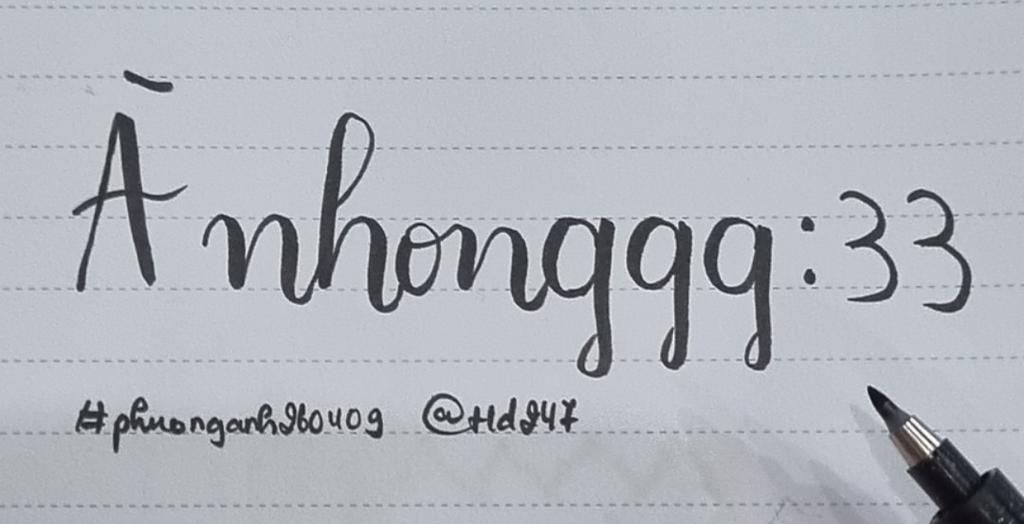 À nhonggg:33
#phuonganh260409 @Hd247